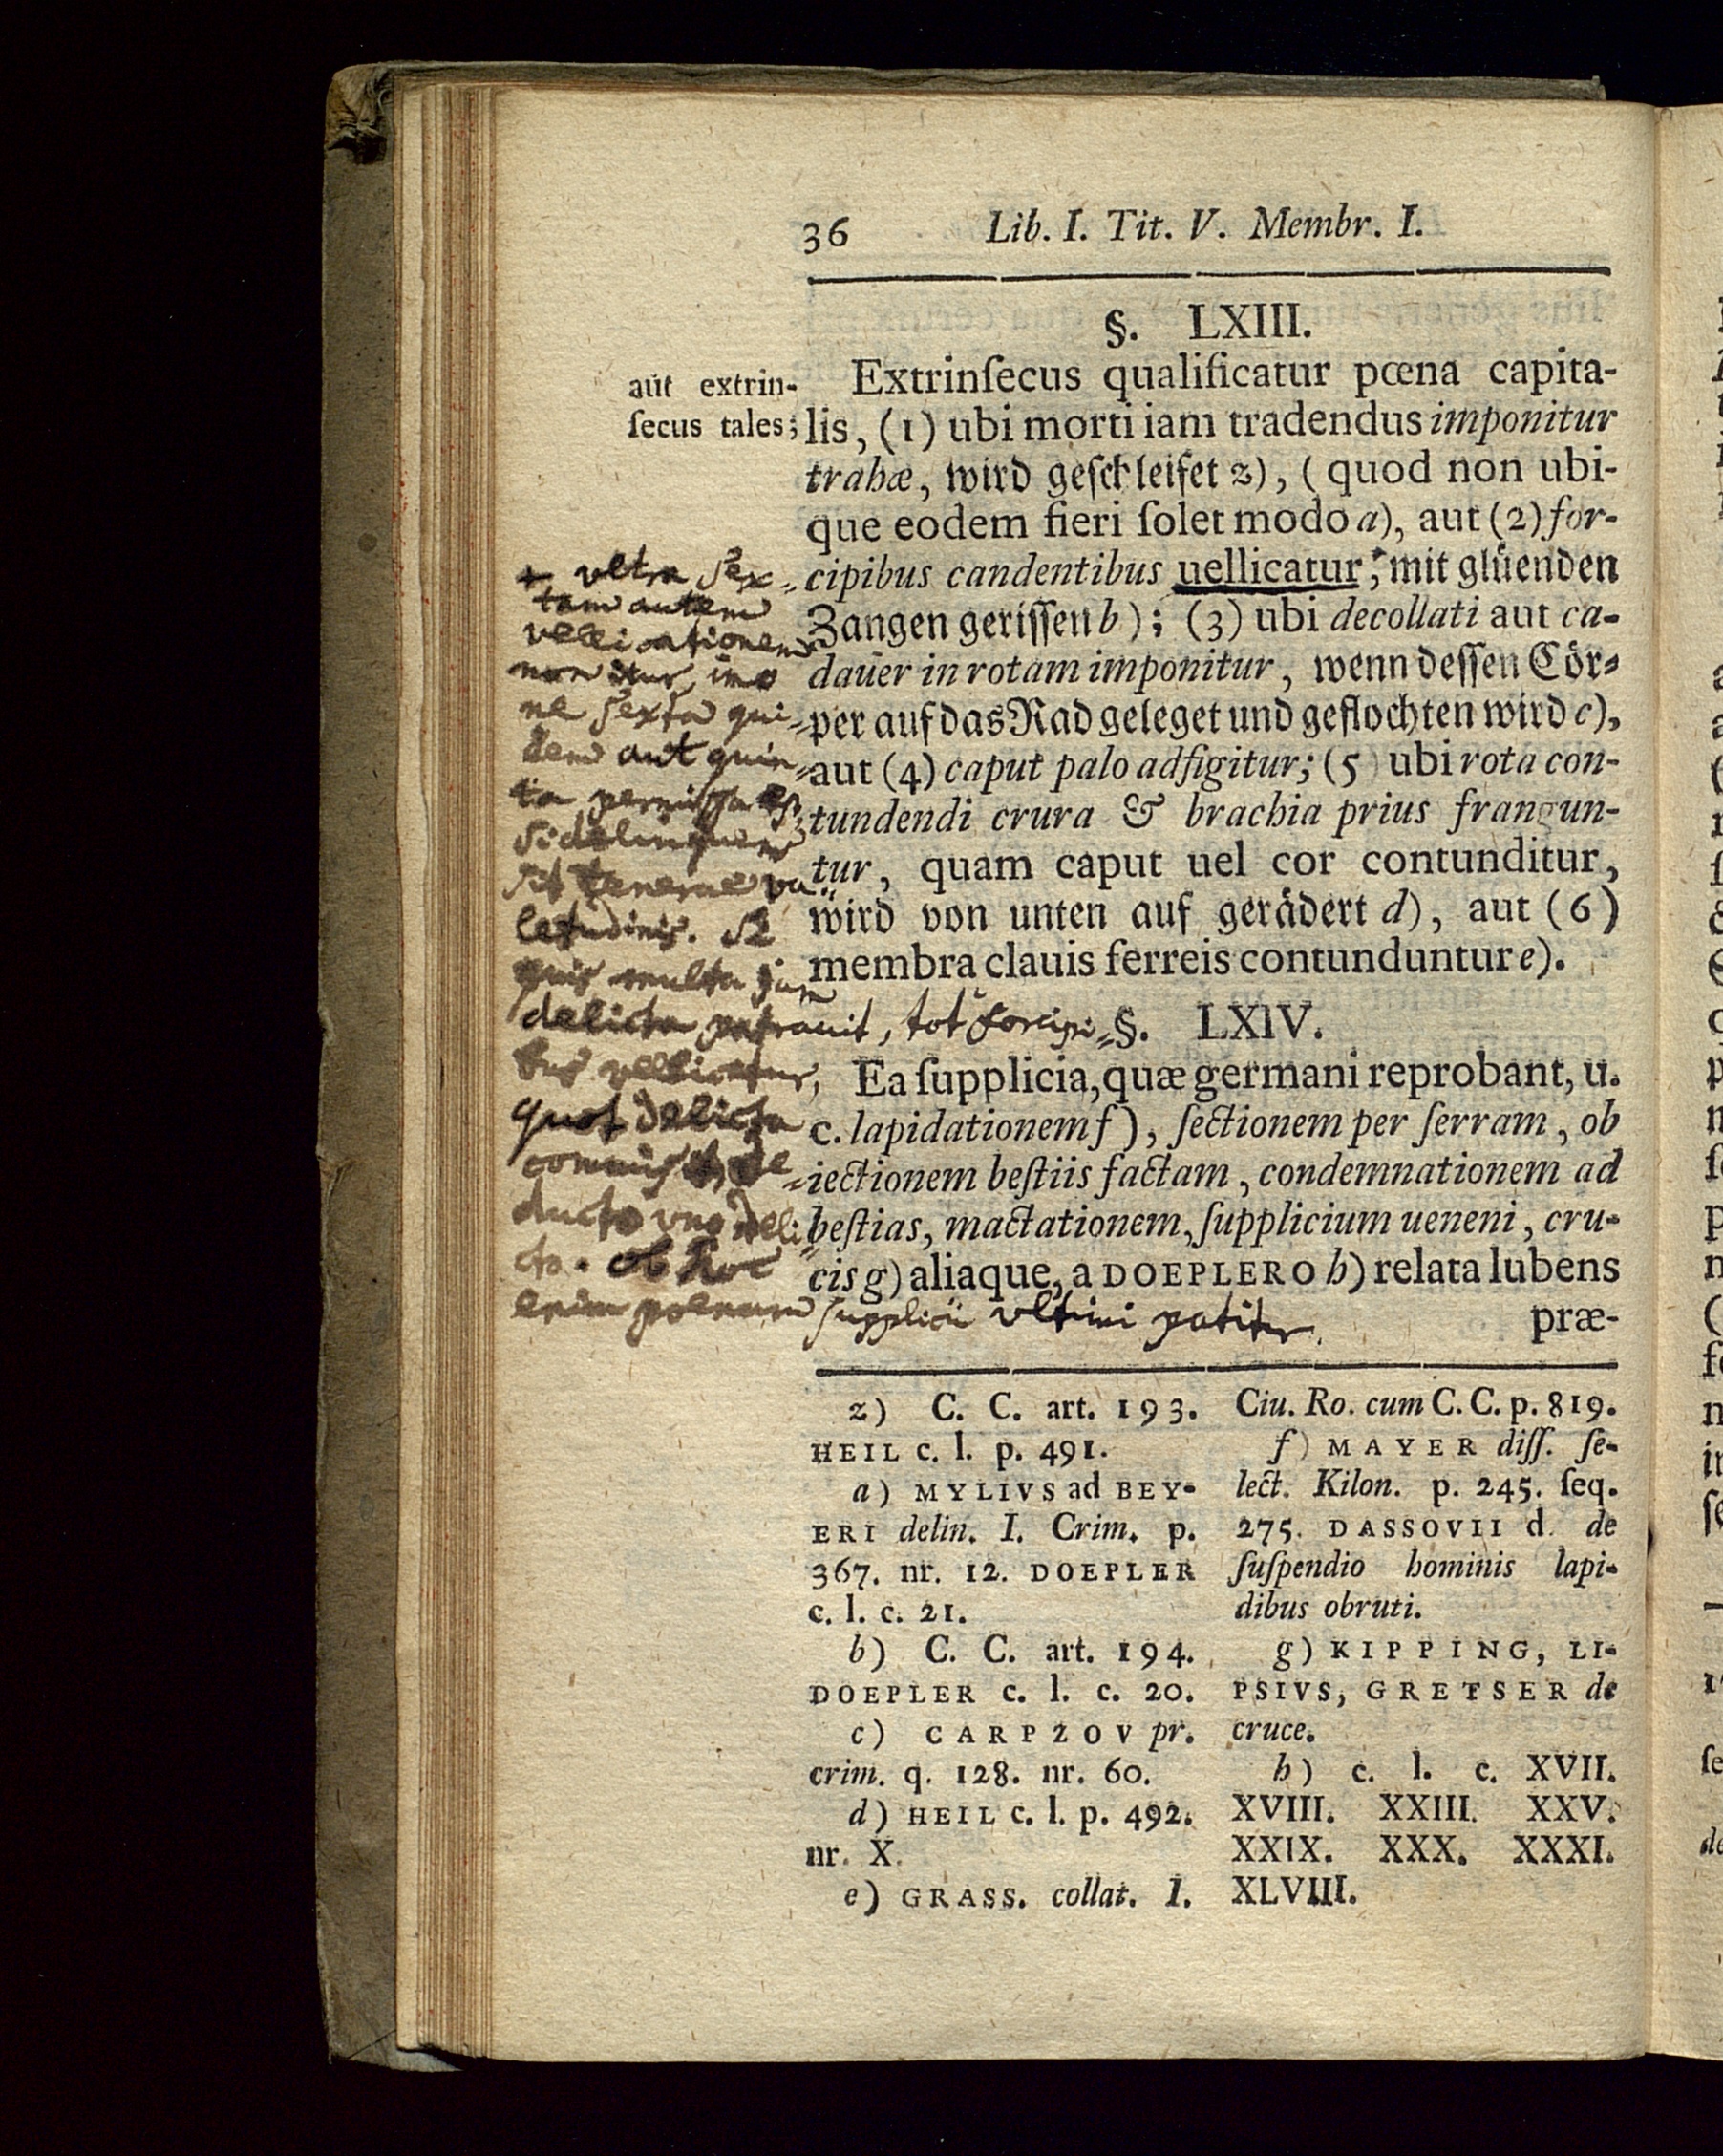 36 Lib. I. Tit. V. Membr. I.
§. LXIII.
aut extrin-
ſecus tales;
Extrinſecus qualificatur pœna capita-
lis, (1) ubi morti iam tradendus imponitur
trahæ, wird geſchleifet z), ( quod non ubi-
que eodem fieri ſolet modo a), aut (2) for-
cipibus candentibus uellicatur, mit glüenden
Zangen geriſſen b); (3) ubi decollati aut ca-
dauer in rotam imponitur, wenn deſſen Cör-
per auf das Rad geleget und geflochten wird c),
aut (4) caput palo adfigitur; (5) ubi rota con-
tundendi crura & brachia prius frangun-
tur, quam caput uel cor contunditur,
wird von unten auf gerädert d), aut (6)
membra clauis ferreis contunduntur e).
+ vltra sex-
tam autem
vellicationem
non itur, imo
ne sexta qui-
dem aut quin-
ta permissa est,
si delinquens
sit tenerae va-
letudinis. Si
quis multa jam
delicta patrauit, tot forcipi-
bus vellicatur,
quot delicta
commisit, de-
ducto vno deli-
cto. ob hoc
enim poenam supplicii vltimi patitur.
§. LXIV.
Ea ſupplicia, quæ germani reprobant, u.
c. lapidationem f), ſectionem per ſerram, ob
iectionem beſtiis factam, condemnationem ad
beſtias, mactationem, ſupplicium ueneni, cru-
cis g) aliaque, a DOEPLERO h) relata lubens
præ-
z) C. C. art. 193.
HEIL c. l. p. 491.
a) MYLIVS ad BEY-
ERI delin. I. Crim. p.
367. nr. 12. DOEPLER
c. l. c. 21.
b) C. C. art. 194.
DOEPLER c. l. c. 20.
c) CARPZOV pr.
crim. q. 128. nr. 60.
d) HEIL c. l. p. 492.
nr. X.
e) GRASS. collat. I.
Ciu. Ro. cum C. C. p. 819.
f) MAYER diſſ. ſe-
lect. Kilon. p. 245. ſeq.
275. DASSOVII d. de
ſuſpendio hominis lapi-
dibus obruti.
g) KIPPING, LI-
PSIVS, GRETSER de
cruce.
h) c. l. c. XVII.
XVIII. XXIII. XXV.
XXIX. XXX. XXXI.
XLVIII.